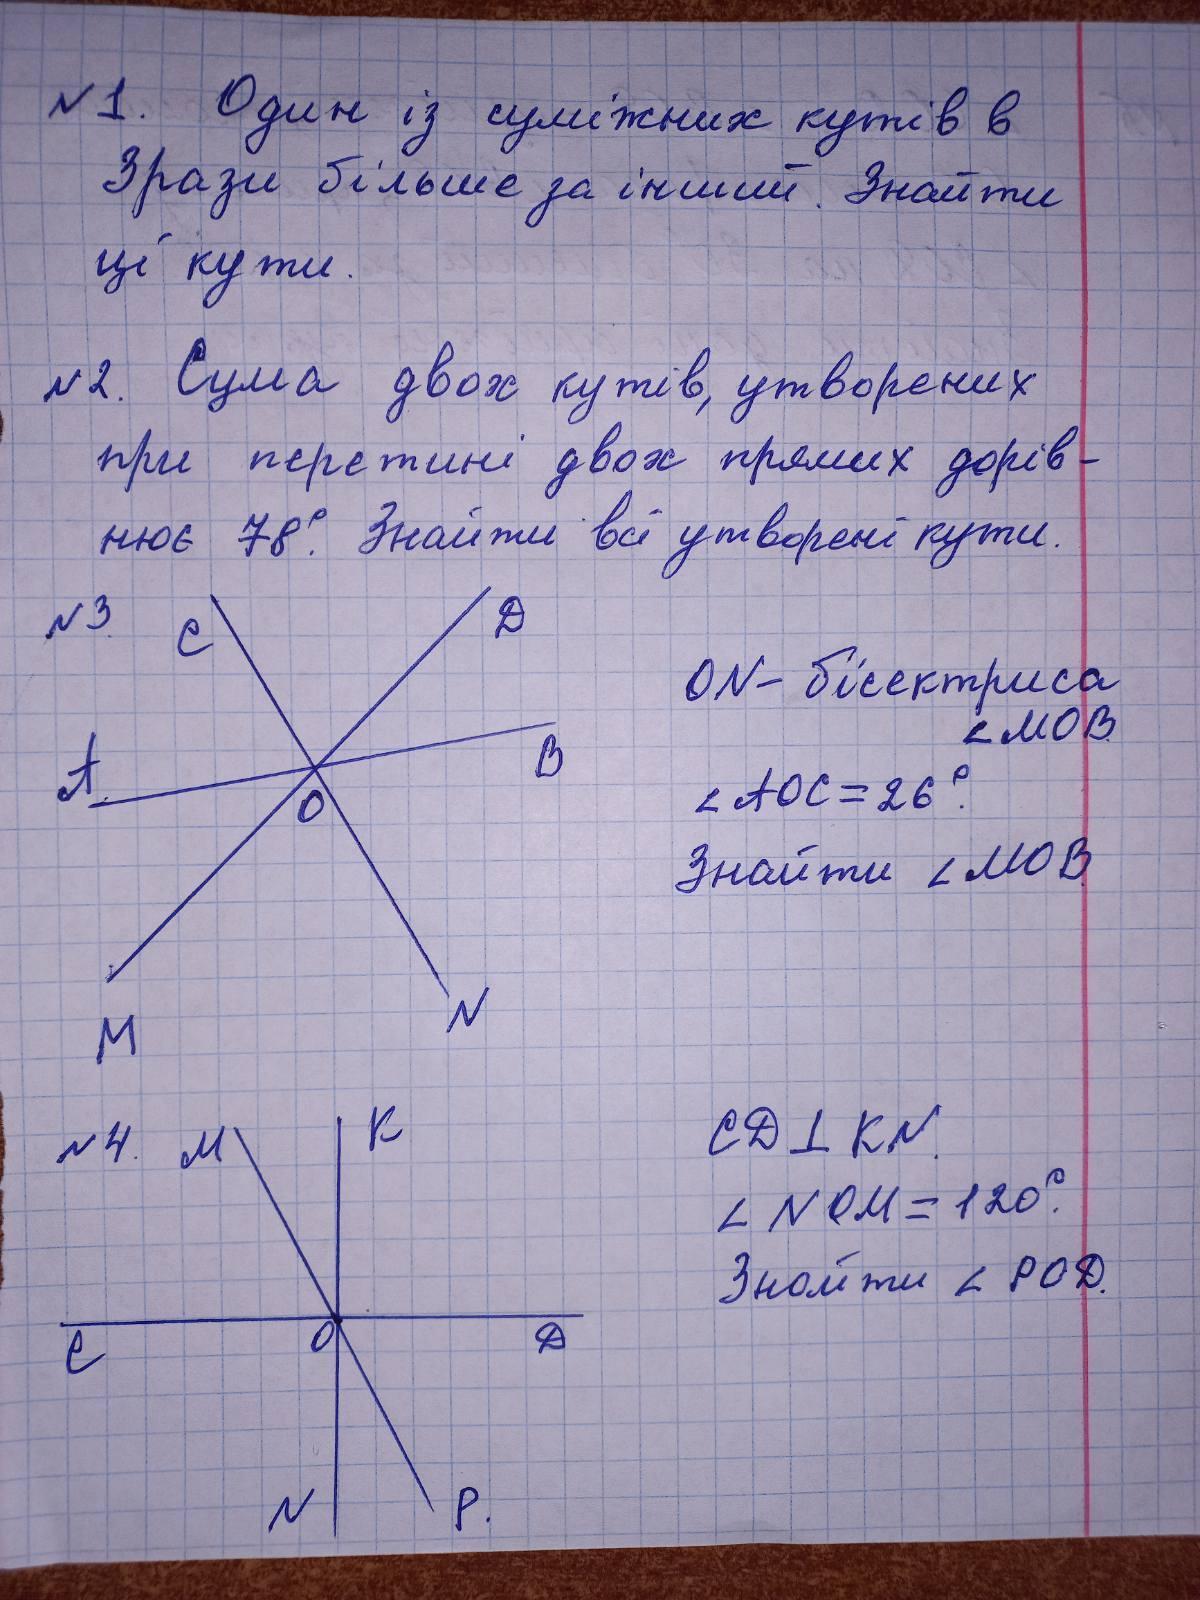 №1. Один із суміжних кутів в
3 рази більше за інший. Знайти
ці кути.
№2. Сума двох кутів, утворених
при перетині двох прямих дорів-
нює 78°. Знайти всі утворені кути.
№3.
C
D
A
B
O
M
N
ON - бісектриса
∠MOB.
∠AOC = 26°.
Знайти ∠MOB.
№4.
M
K
C
O
D
N
P.
CD ⊥ KN.
∠NOM = 120°.
Знайти ∠POD.